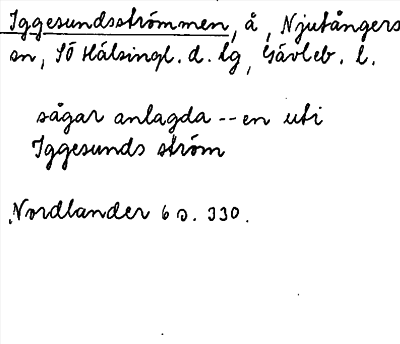 Iggesundsströmmen, å, Njutångers
sn, SÖ Hälsingl. d. lg, Gävleb. l.
sågar anlagda -- en uti
Iggesunds ström
Nordlander 6 s. 330.